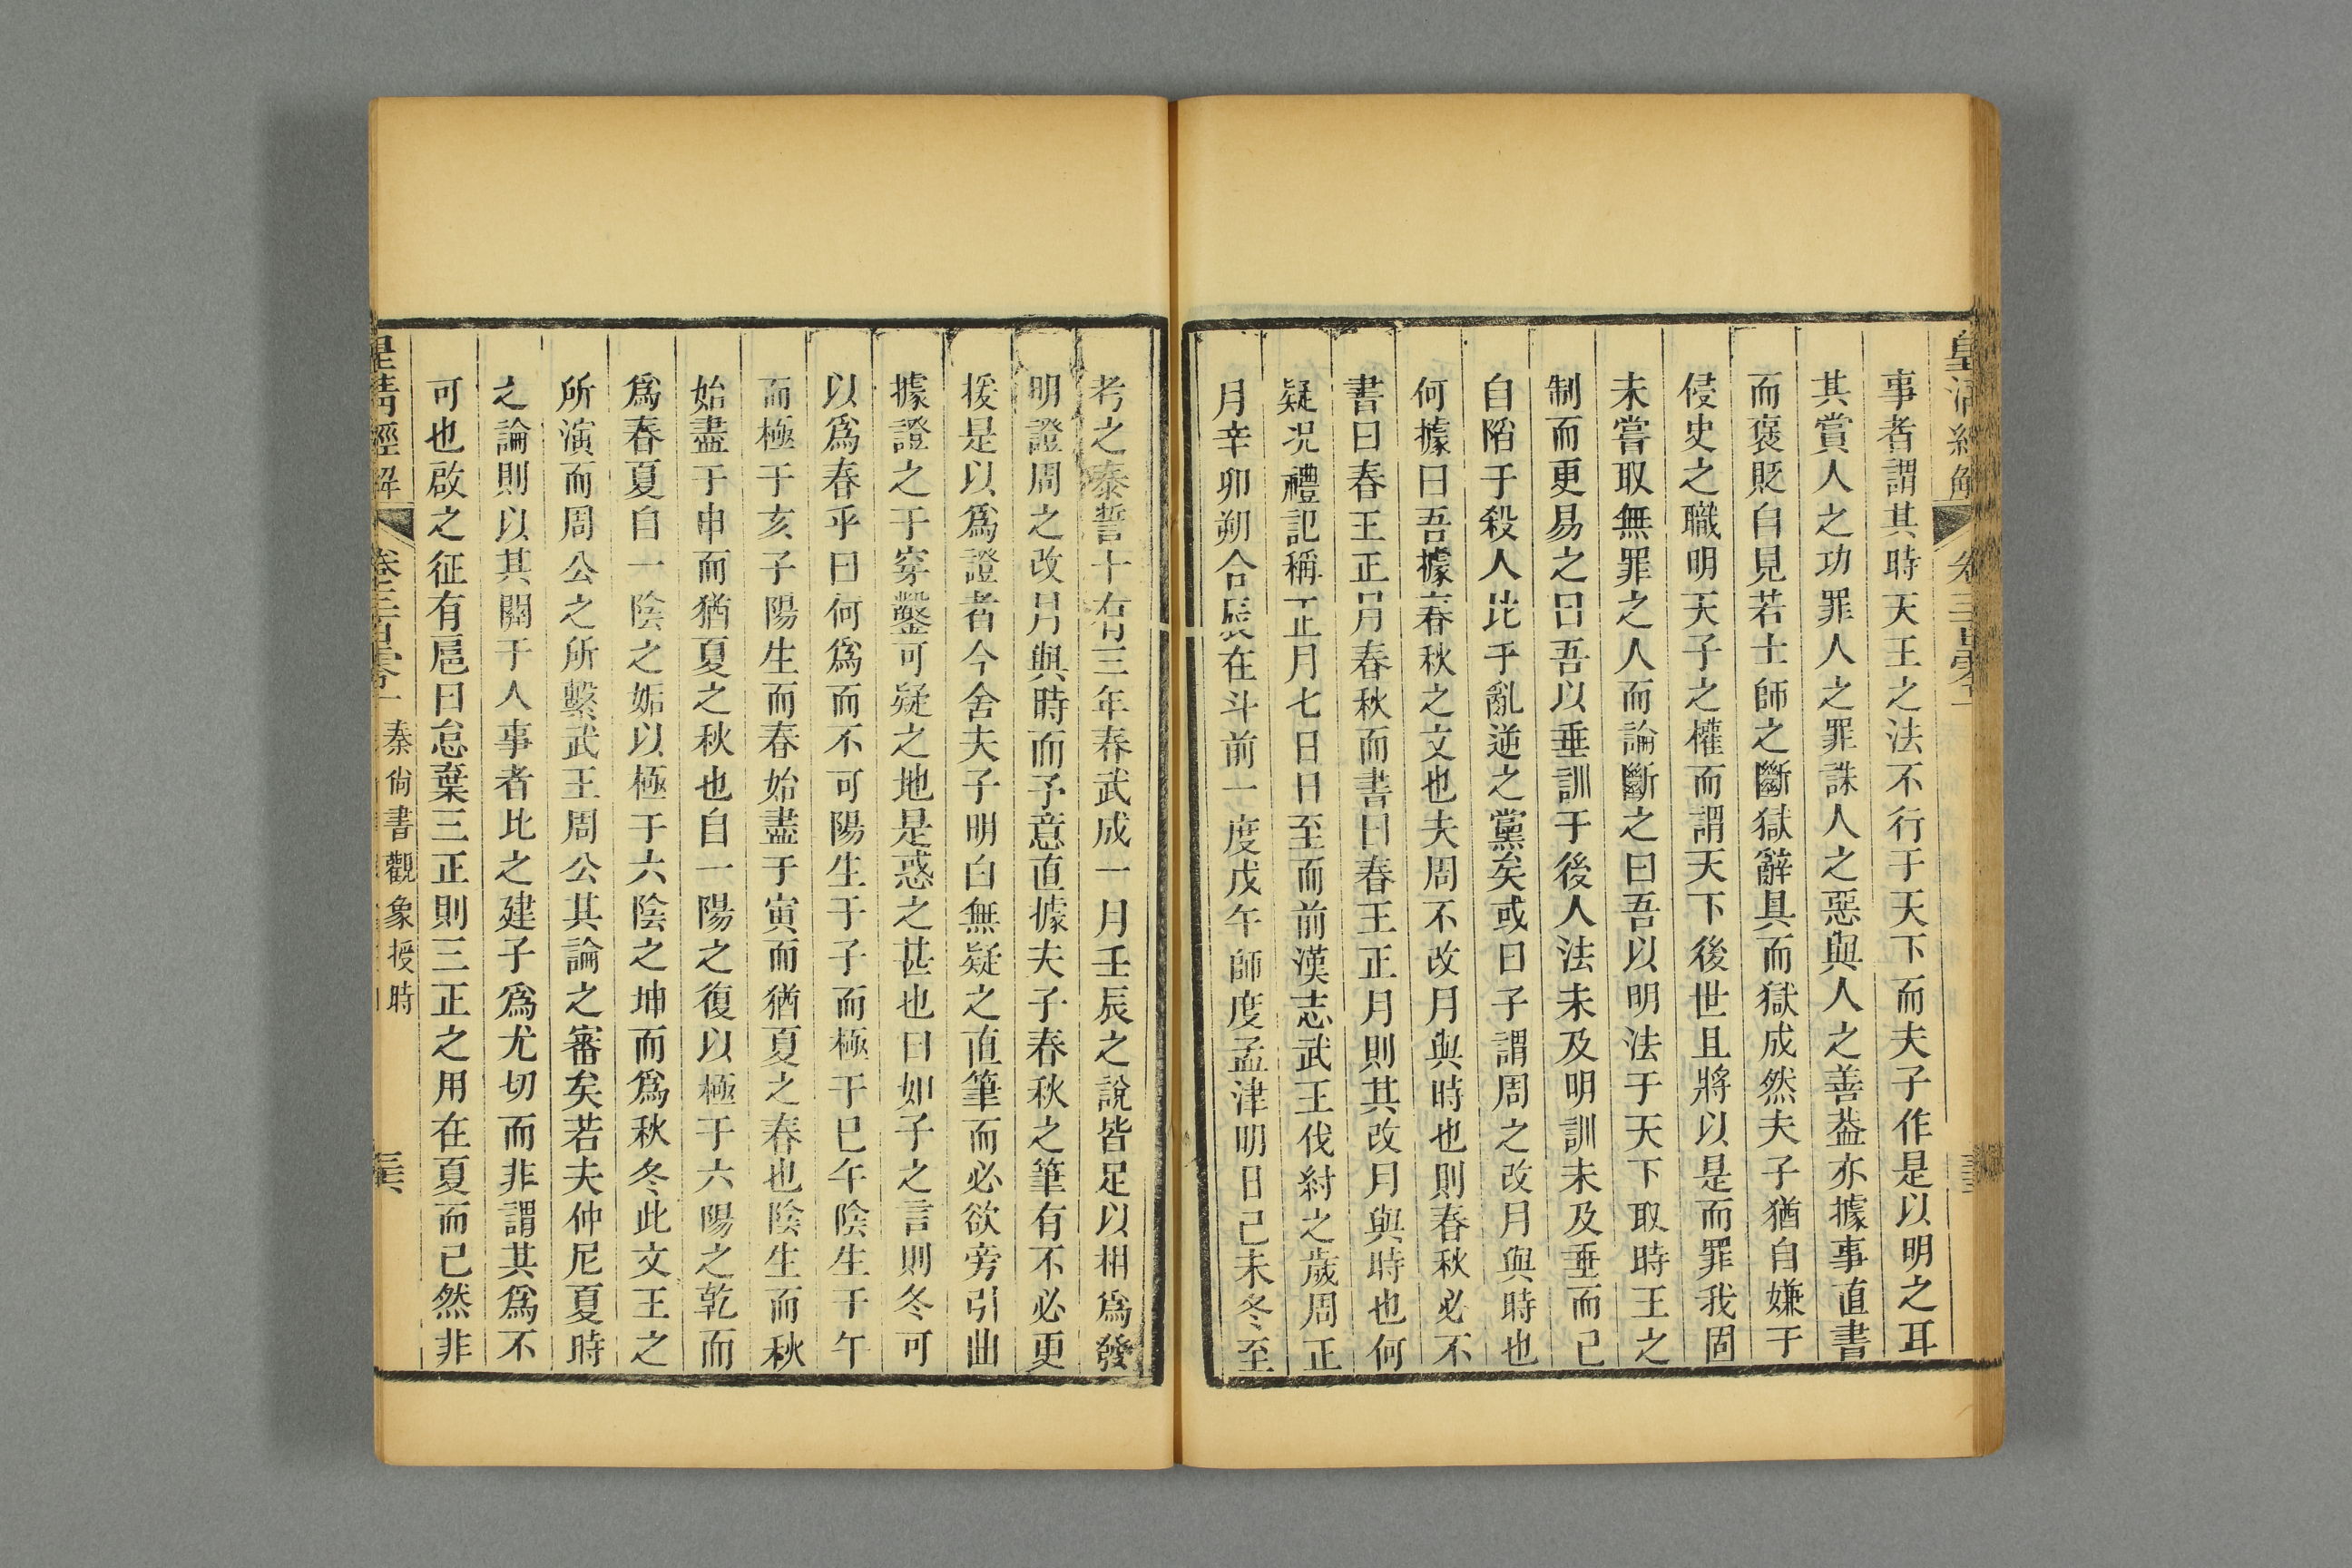 皇清經解
卷三百零一
事者謂其時天王之法不行于天下而夫子作是以明之耳
其賞人之功罪人之罪誅人之惡與人之善蓋亦據事直書
而褒貶自見若士師之斷獄辭具而獄成然夫子猶自嫌于
侵史之職明天子之權而謂天下後世且將以是而罪我固
未嘗取無罪之人而論斷之曰吾以明法于天下取時王之
制而更易之曰吾以垂訓于後人法未及明訓未及垂而已
自陷于殺人比乎亂逆之黨矣或曰子謂周之改月與時也
何據曰吾據春秋之文也夫周不改月與時也則春秋必不
書曰春王正月春秋而書曰春王正月則其改月與時也何
疑況禮記稱正月七日日至而前漢志武王伐紂之歲周正
月辛卯朔合辰在斗前一度戊午師度孟津明日己未冬至
考之泰誓十有三年春武成一月壬辰之說皆足以相爲發
明證周之改月與時而予意直據夫子春秋之筆有不必更
援是以爲證者今舍夫子明白無疑之直筆而必欲旁引曲
據證之于穿鑿可疑之地是惑之甚也曰如子之言則冬可
以爲春乎曰何爲而不可陽生于子而極于巳午陰生于午
而極于亥子陽生而春始盡于寅而猶夏之春也陰生而秋
始盡于申而猶夏之秋也自一陽之復以極于六陽之乾而
爲春夏自一陰之姤以極于六陰之坤而爲秋冬此文王之
所演而周公之所繫武王周公其論之審矣若夫仲尼夏時
之論則以其關于人事者比之建子爲尤切而非謂其爲不
可也啟之征有扈曰怠棄三正則三正之用在夏而已然非
皇清經解
卷三百零一
秦尚書觀象授時